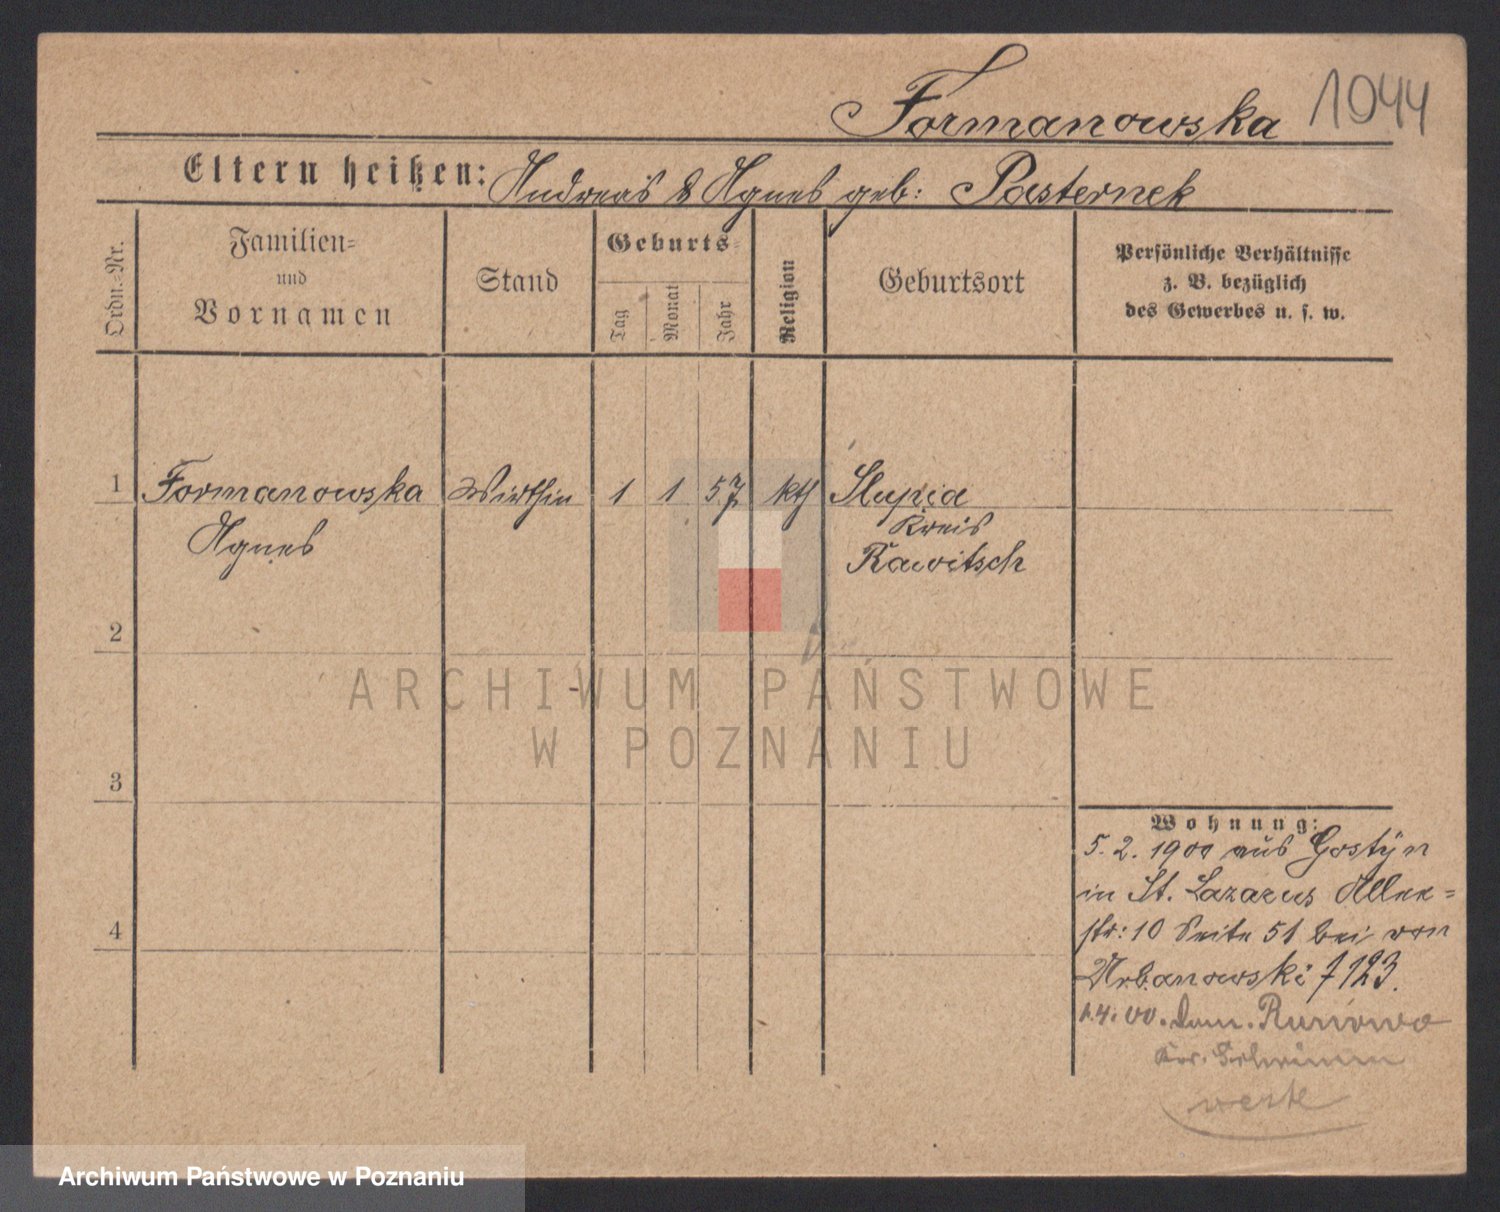 Formanowska 1044
Eltern heißen: Andreas & Agnes geb: Pasternek
Ordn.-Nr.
Familien-
und
Vornamen
Stand
Geburts-
Tag
Monat
Jahr
Religion
Geburtsort
Persönliche Verhältnisse
z. B. bezüglich
des Gewerbes u. s. w.
1 Formanowska Wirthin 1 1 57 kth Slupia
Agnes
Kreis
Rawitsch
2
3
4
Wohnung:
5. 2. 1900 aus Gostÿn
in St. Lazarus Allee-
str: 10 Seite 51 bei von
Urbanowski 7123.
1.4.00. Dom.
Kr. Schrimm
ARCHIWUM PAŃSTWOWE
W POZNANIU
Archiwum Państwowe w Poznaniu